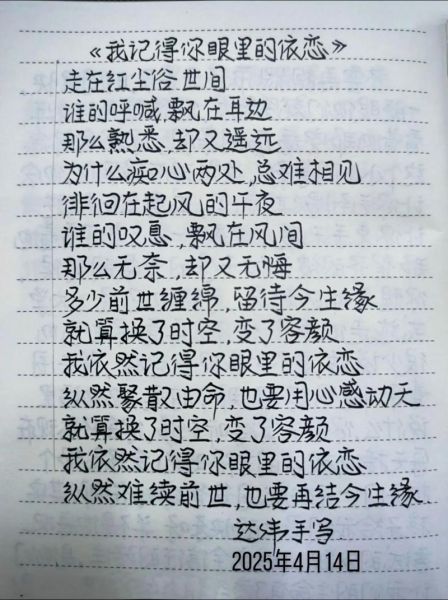 《我记得你眼里的依恋》
走在红尘俗世间
谁的呼喊,飘在耳边
那么熟悉,却又遥远
为什么痴心两处,总难相见
徘徊在起风的午夜
谁的叹息,飘在风间
那么无奈,却又无悔
多少前世缠绵,留待今生缘
就算换了时空,变了容颜
我依然记得你眼里的依恋
纵然聚散由命,也要用心感动天
就算换了时空,变了容颜
我依然记得你眼里的依恋
纵然难续前世,也要再结今生缘
达伟手写
2025年4月14日